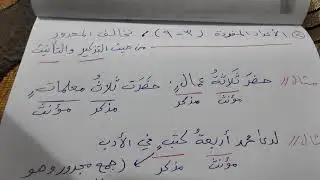 ② الأعداد المفردة (٣-٩)، تخالف المعدود
من حيث التذكير والتأنيث
مثال // حضرَ ثلاثةُ عمالٍ. حضَرَت ثلاثُ معلماتٍ
مؤنث مذكر مذكر مؤنث
مثال // لدى أحمد أربعةُ كتبٍ في الأدب
مؤنث مذكر (جمع مجرور وهو